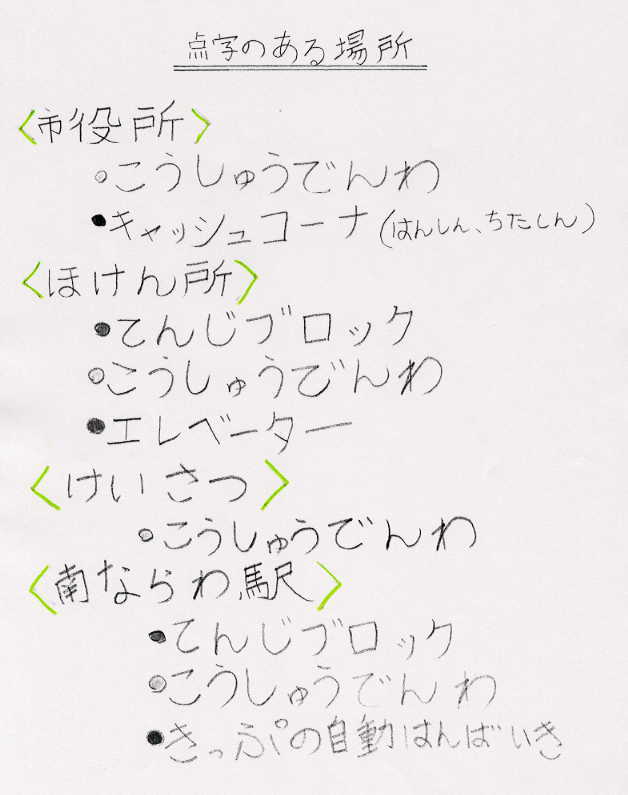 点字のある場所
<市役所>
○こうしゅうでんわ
●キャッシュコーナ(はんしん、ちたしん)
<ほけん所>
●てんじブロック
○こうしゅうでんわ
●エレベーター
<けいさつ>
○こうしゅうでんわ
<南ならわ駅>
●てんじブロック
○こうしゅうでんわ
●きっぷの自動はんばいき